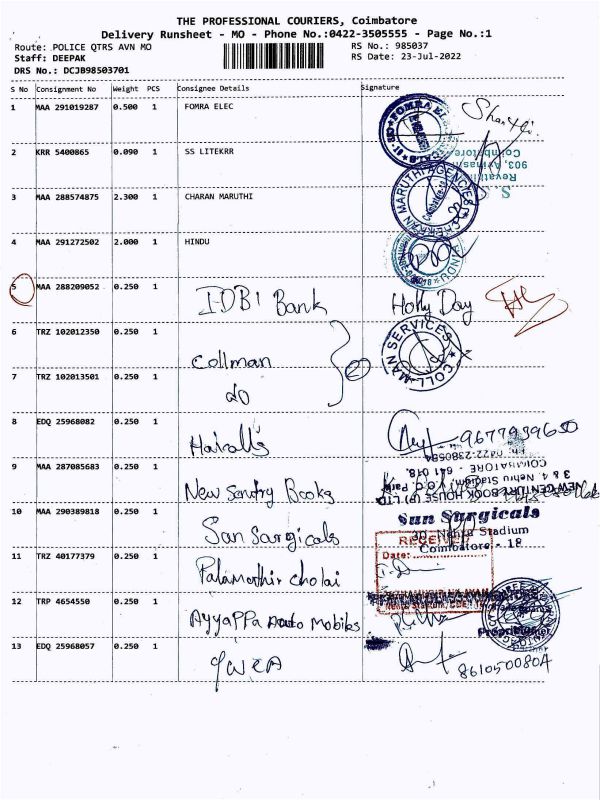 THE PROFESSIONAL COURIERS, Coimbatore
Delivery Runsheet - MO - Phone No.:0422-3505555 - Page No.:1
Route: POLICE QTRS AVN MO RS No.: 985037
Staff: DEEPAK RS Date: 23-Jul-2022
DRS No.: DCJB98503701
S No Consignment No Weight PCS Consignee Details Signature
1 MAA 291019287 0.500 1 FOMRA ELEC
2 KRR 5400865 0.090 1 SS LITEKRR
3 MAA 288574875 2.300 1 CHARAN MARUTHI
4 MAA 291272502 2.000 1 HINDU
5 MAA 288209052 0.250 1 IDBI Bank Holly Day
6 TRZ 102012350 0.250 1 Collman
COLL-MAN SERVICES
7 TRZ 102013501 0.250 1 do
8 EDQ 25968082 0.250 1 9677939650
9 MAA 287085683 0.250 1 New Sentry Books
NEW CENTURY BOOK HOUSE (P) LTD
3 & 4 Nehru Stadium
COIMBATORE - 641 018.
10 MAA 290389818 0.250 1 San Sargicals
Sun Surgicals
30, Nehru Stadium
Coimbatore - 18
11 TRZ 40177379 0.250 1 Palamuthir cholai
RECEIVED
Date:
12 TRP 4654550 0.250 1 Ayyappa Auto Mobiles
Proprietor
13 EDQ 25968057 0.250 1 YWCA